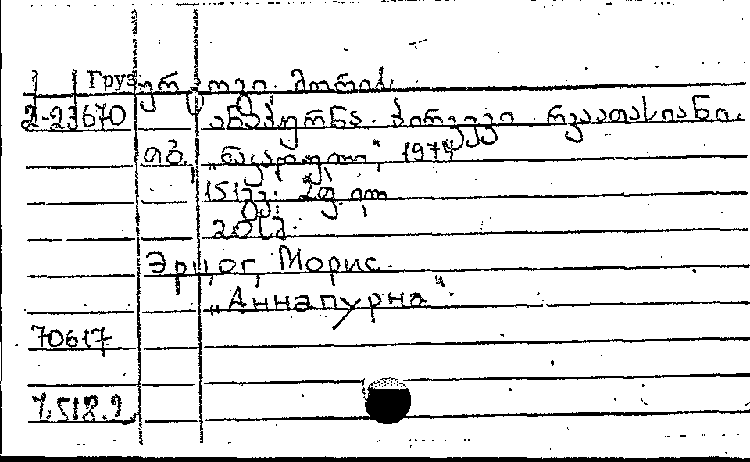 Груз
ერცოგი მორის.
2-23670 ანაპურნა. პირველი რვაათასიანი.
თბ. „ნაკადული", 1974
151გვ. 20 სმ.
Эрцог, Морис.
„Аннапурна".
70617
7.518.2